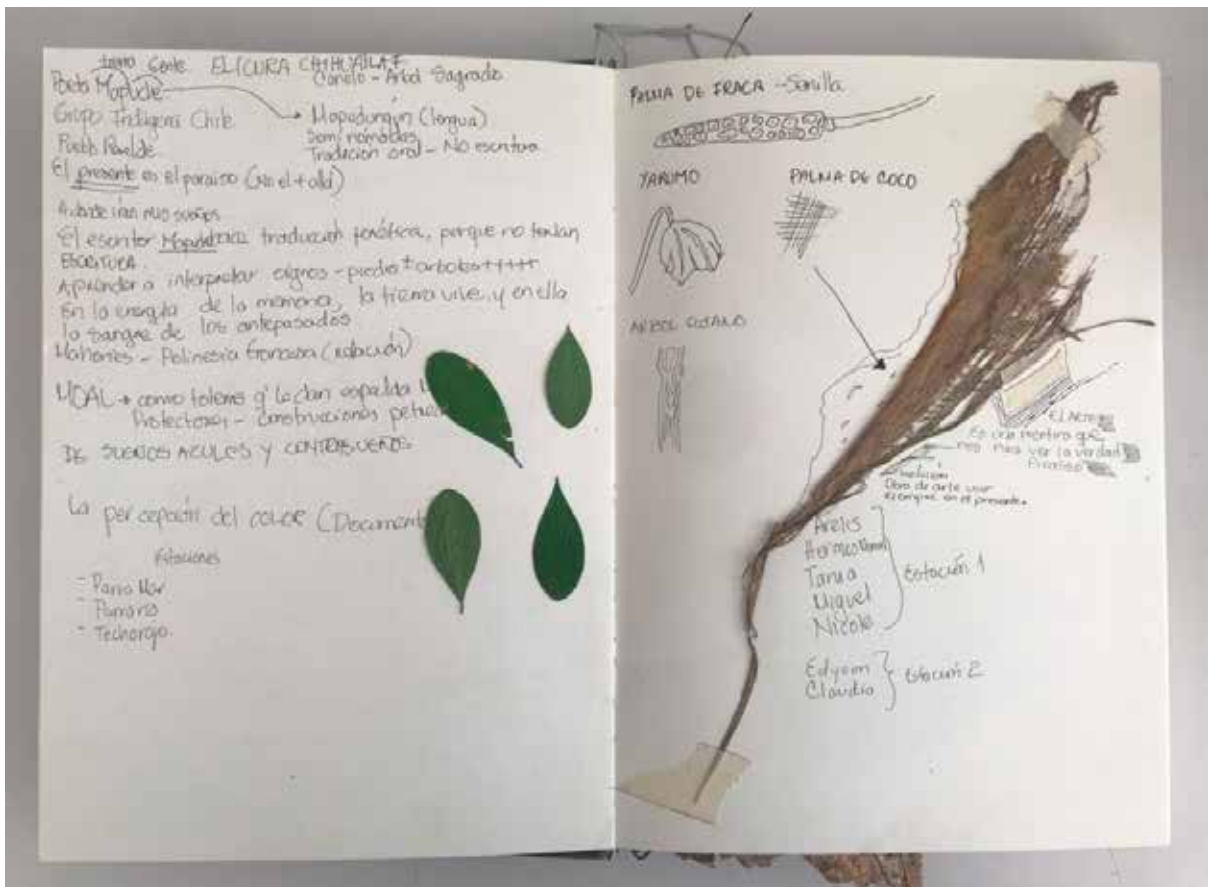 tierra Gente ELICURA CHIHUAILAF
Canelo - Arbol Sagrado
Poeta Mapuche
Grupo Indígena Chile
Mapadungún (lengua)
Semi nómadas
Tradición oral - No escritura
Pueblo
El presente es el paraíso (no el + allá)
A donde irán mis sueños
El escritor traducción fonética, porque no tenían
ESCRITURA.
Aprender a interpretar signos - piedra + arboles +++++
En la energía de la memoria, la tierra vive, y en ella
la sangre de los antepasados
Polinesia Francesa (relación)
MOAI + como totems q' le dan espalda
Protectores - construcciones
DE SUEÑOS AZULES Y CONTRASUEÑOS
La percepción del COLOR (Document
Estaciones
- Paria Mar
-
- Techorojo.
PALMA DE IRACA - Semilla
YARUMO
PALMA DE COCO
ARBOL
El Arte
Es una mentira que
nos hace ver la verdad
Picasso
Obra de arte vivir
siempre en el presente.
Areles
Hermes
Tania
Miguel
Nicole
Estación 1
Edyson
Claudia
Estación 2